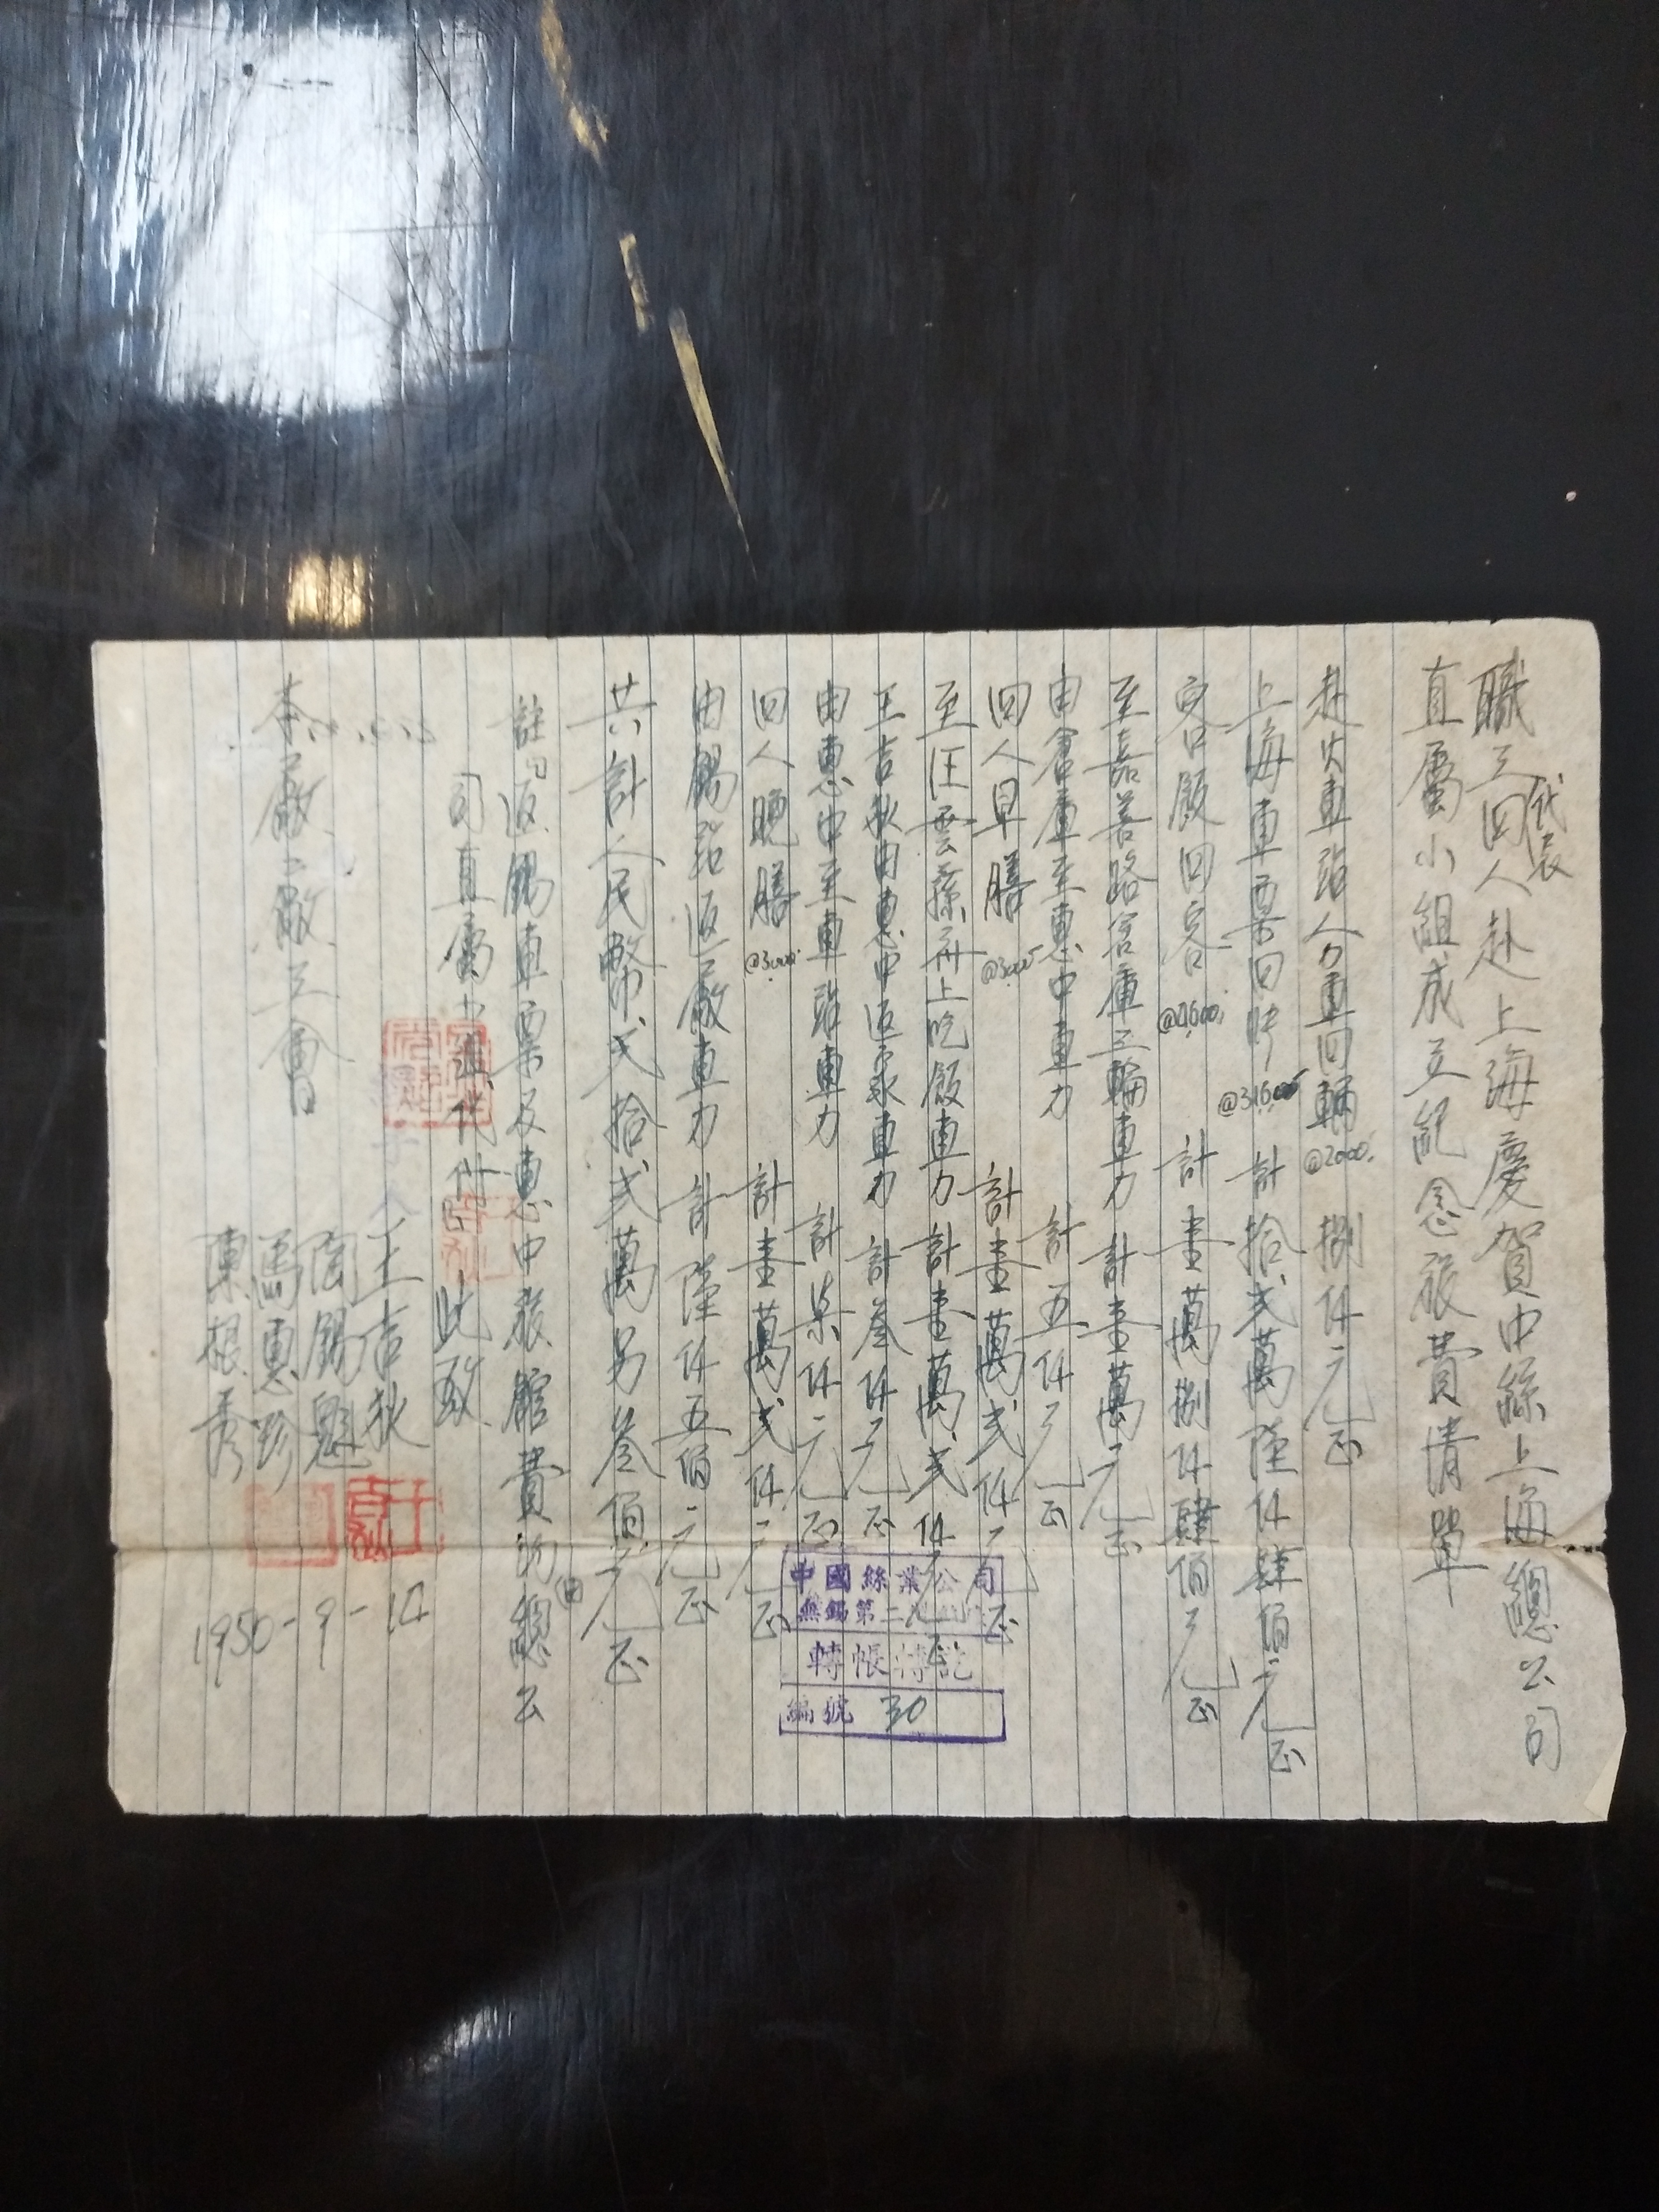 職工代表四人赴上海慶賀中絲上海總公司
直屬小組成立紀念旅費清單
赴火車站人力車四輛@2000. 捌仟元正
上海車票四時@31600 計拾弍萬陸仟肆佰元正
客飯四客@4600. 計壹萬捌仟肆佰元正
至嘉善路倉庫三輪車力 計壹萬元正
由倉庫至惠中車力 計五仟元正
四人早膳@3000 計壹萬弍仟元正
至汪雲蓀府上吃飯車力 計壹萬弍仟元正
王吉狄由惠中返家車力 計叁仟元正
由惠中至車站車力 計柒仟元正
四人晚膳@3000. 計壹萬弍仟元正
由錫站返廠車力 計陸仟五佰元正
共計人民幣弍拾弍萬另叁佰元正
註：返錫車票及惠中旅館費均由總公
司直屬小組代付 此致
本廠二廠工會
王吉狄
陶錫魁
馬惠珍
陳根秀
1950-9-14
中國絲業公司
無錫第二
轉帳轉訖
編號 30